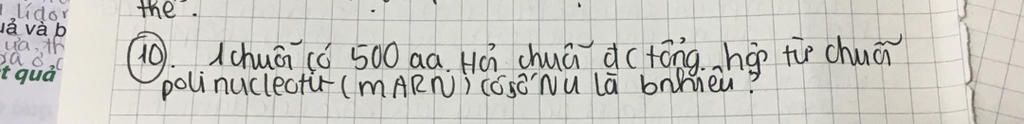 lidor
the .
iả và b
ưa, th
t quả
(10). 1 chuỗi có 500 aa. Hỏi chuỗi đc tổng hợp từ chuỗi
polinucleotit (mARN) có số Nu là bnhiêu?